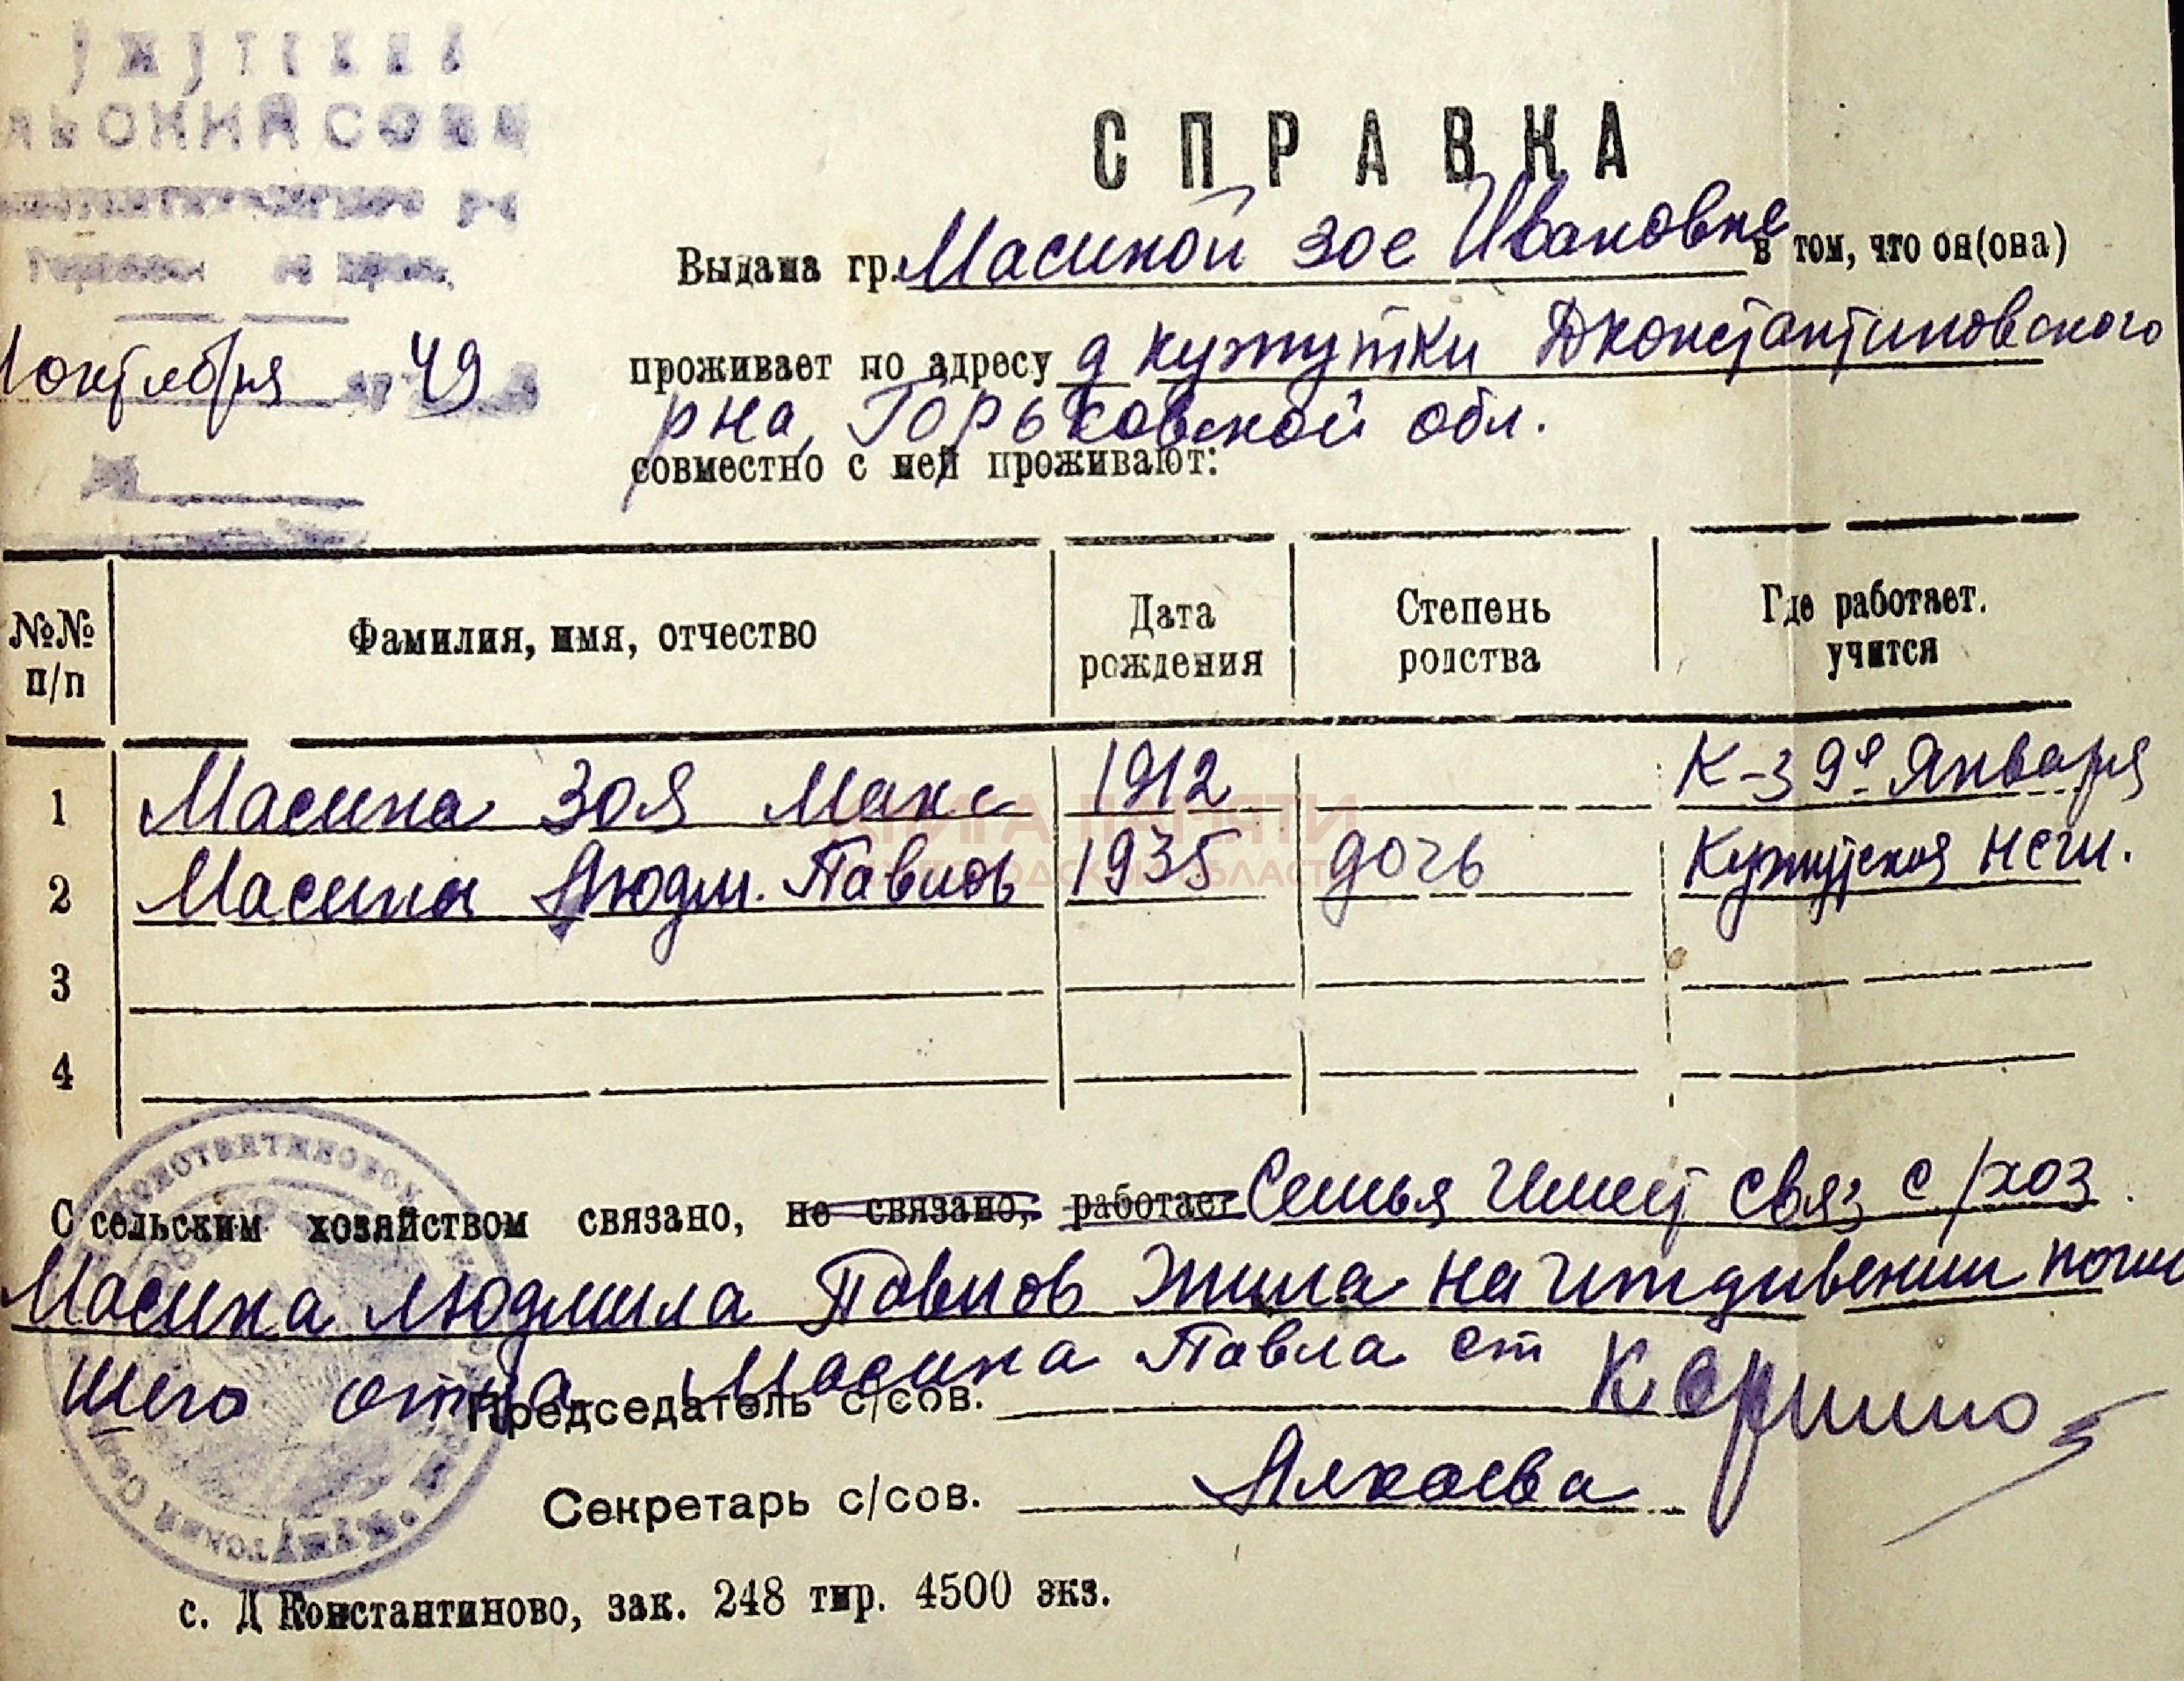 СПРАВКА
Выдана гр. Масиной Зое Ивановне в том, что он(она)
октября 49
проживает по адресу д кужутки Дконстантиновского
рна, Горьковской обл.
совместно с ней проживают:
№№ п/п Фамилия, имя, отчество Дата рождения Степень родства Где работает. учится
1 Масина Зоя Макс 1912 К-з 9е Января
2 Масина Людм. Павлов 1935 дочь Кужутская
3
4
КНИГА ПАМЯТИ
НИЖЕГОРОДСКОЙ ОБЛАСТИ
С сельским хозяйством связано, не связано, работает Семья имеет связ с/хоз.
Масина Людмила Павлов жила на иждивении погиб
шего отца Масина Павла
Председатель с/сов.
Секретарь с/сов.
с. Д Константиново, зак. 248 тир. 4500 экз.